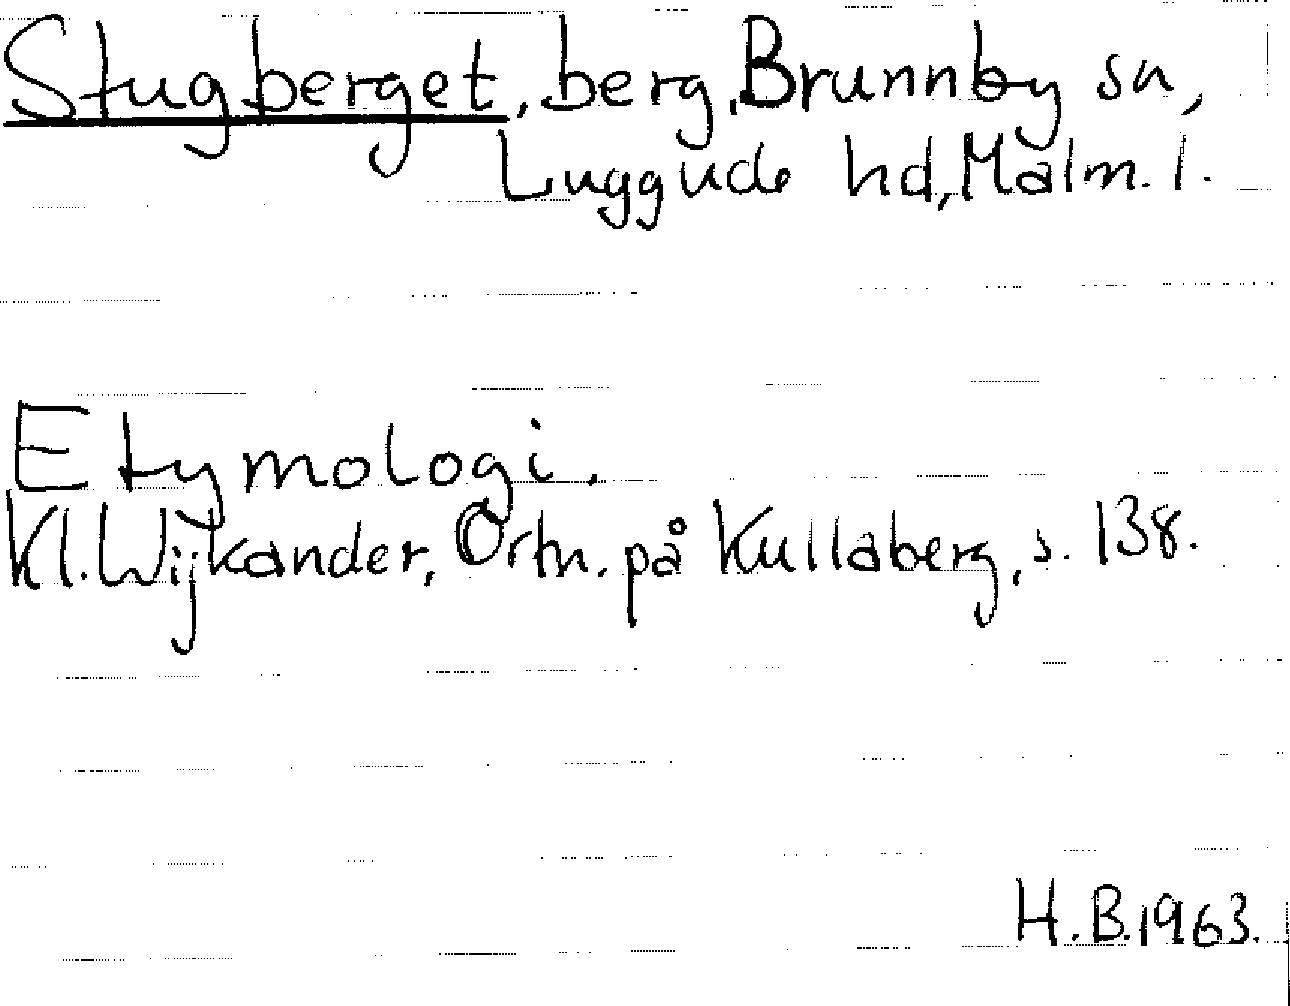 Stugberget, berg, Brunnby sn,
Luggude hd, Malm. l.
Etymologi.
Kl. Wijkander, Ortn. på Kullaberg, s. 138.
H.B. 1963.